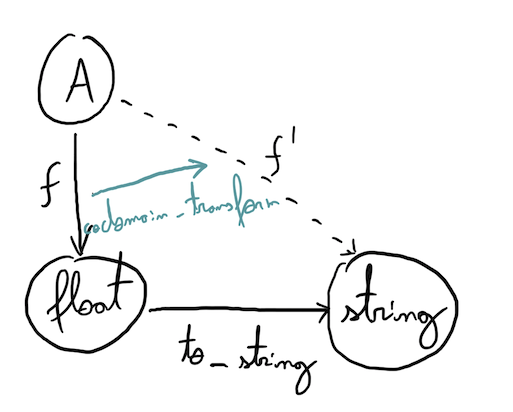 A
f'
f
codomain_transform
float
string
to_string